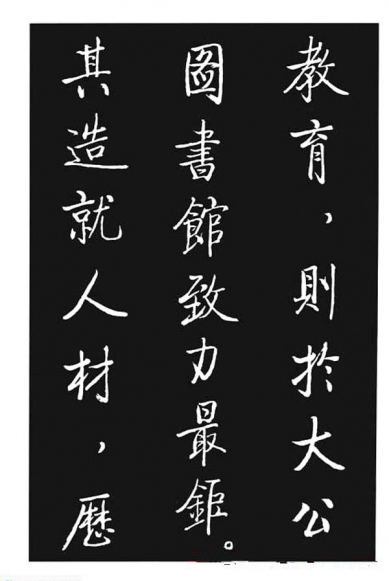 教育，則於大公
圖書館致力最鉅。
其造就人材，歷